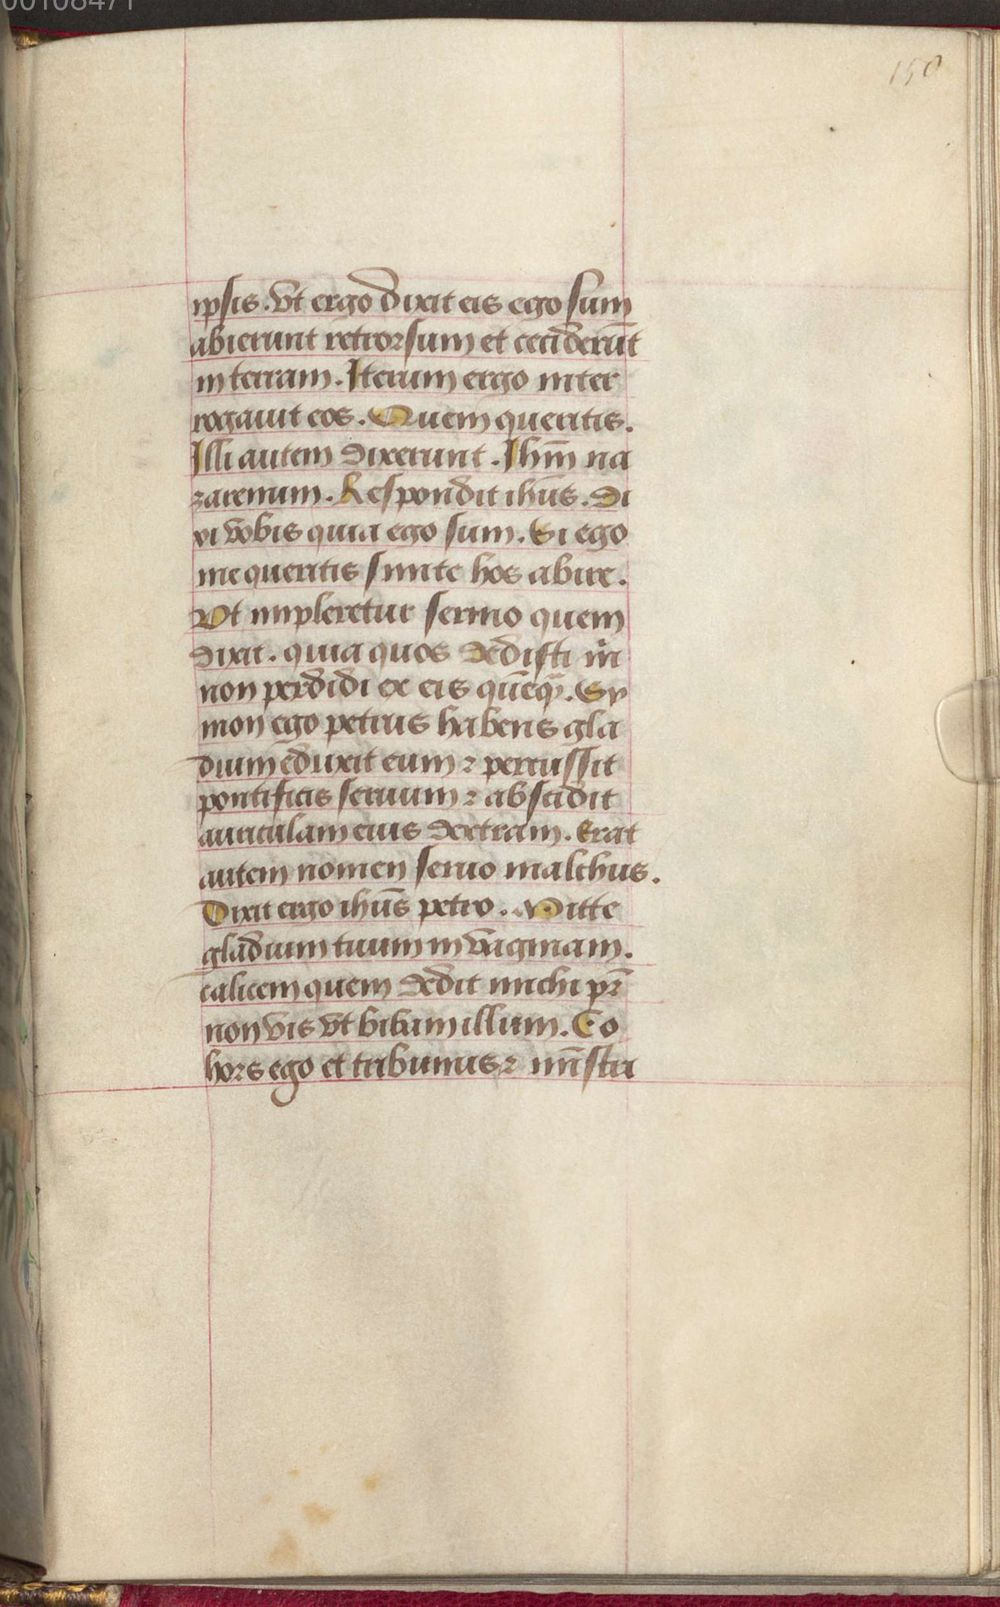 00108471
150
ipsis. Ut ergo dixit eis ego sum
abierunt retrorsum et ceciderūt
in terram. Iterum ergo inter
rogauit eos. Quem queritis.
Illi autem dixerunt. Ihm̄ na
zarenum. Respondit ihūs. Di
xi vobis quia ego sum. Si ego
me queritis sinite hos abire.
Ut impleretur sermo quem
dixit. quia quos dedisti m̄
non perdidi ex eis quēq̄. Sy
mon ego petrus habens gla
dium eduxit eum ⁊ percussit
pontificis seruum ⁊ abscidit
auriculam eius dextram. Erat
autem nomen seruo malchus.
Dixit ergo ihūs petro. Mitte
gladium tuum in vaginam.
calicem quem dedit michi pr̄
non vis vt bibam illum. Co
hors ego et tribunus ⁊ mīstri